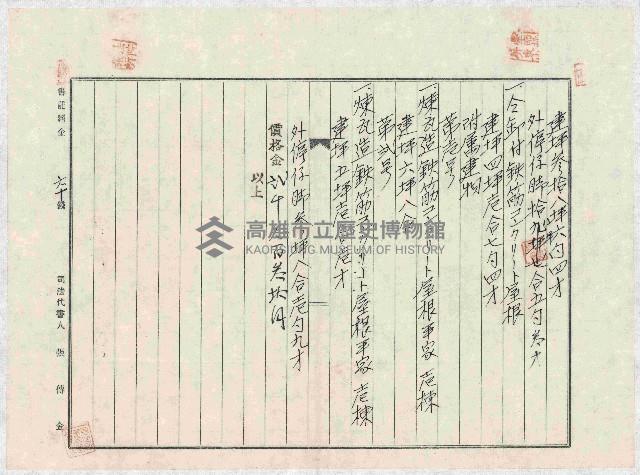 建坪叁拾八坪六勺四才
外停仔脚拾九坪七合五勺叁才
一、仝所 鉄筋コンクリート屋根
建坪四坪壱合七勺四才
附属建物
第壱号
一、煉瓦造鉄筋コンクリート屋根平家 壱棟
建坪六坪八合
第弐号
一、煉瓦造鉄筋コンクリート屋根平家 壱棟
建坪五坪壱合 才
外停仔脚叁坪八合壱勺九才
價格金 弐千 百叁拾円
以上
書記料金 六十錢
司法代書人 張傳金
高雄市立歷史博物館
KAOHSIUNG MUSEUM OF HISTORY